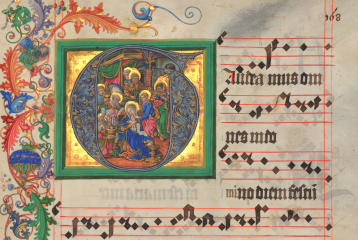 168
G Audea mus om
nes in do
mi no diem festū